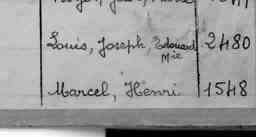 Louis, Joseph, Edouard 2480
Mie
Marcel, Henri 1548